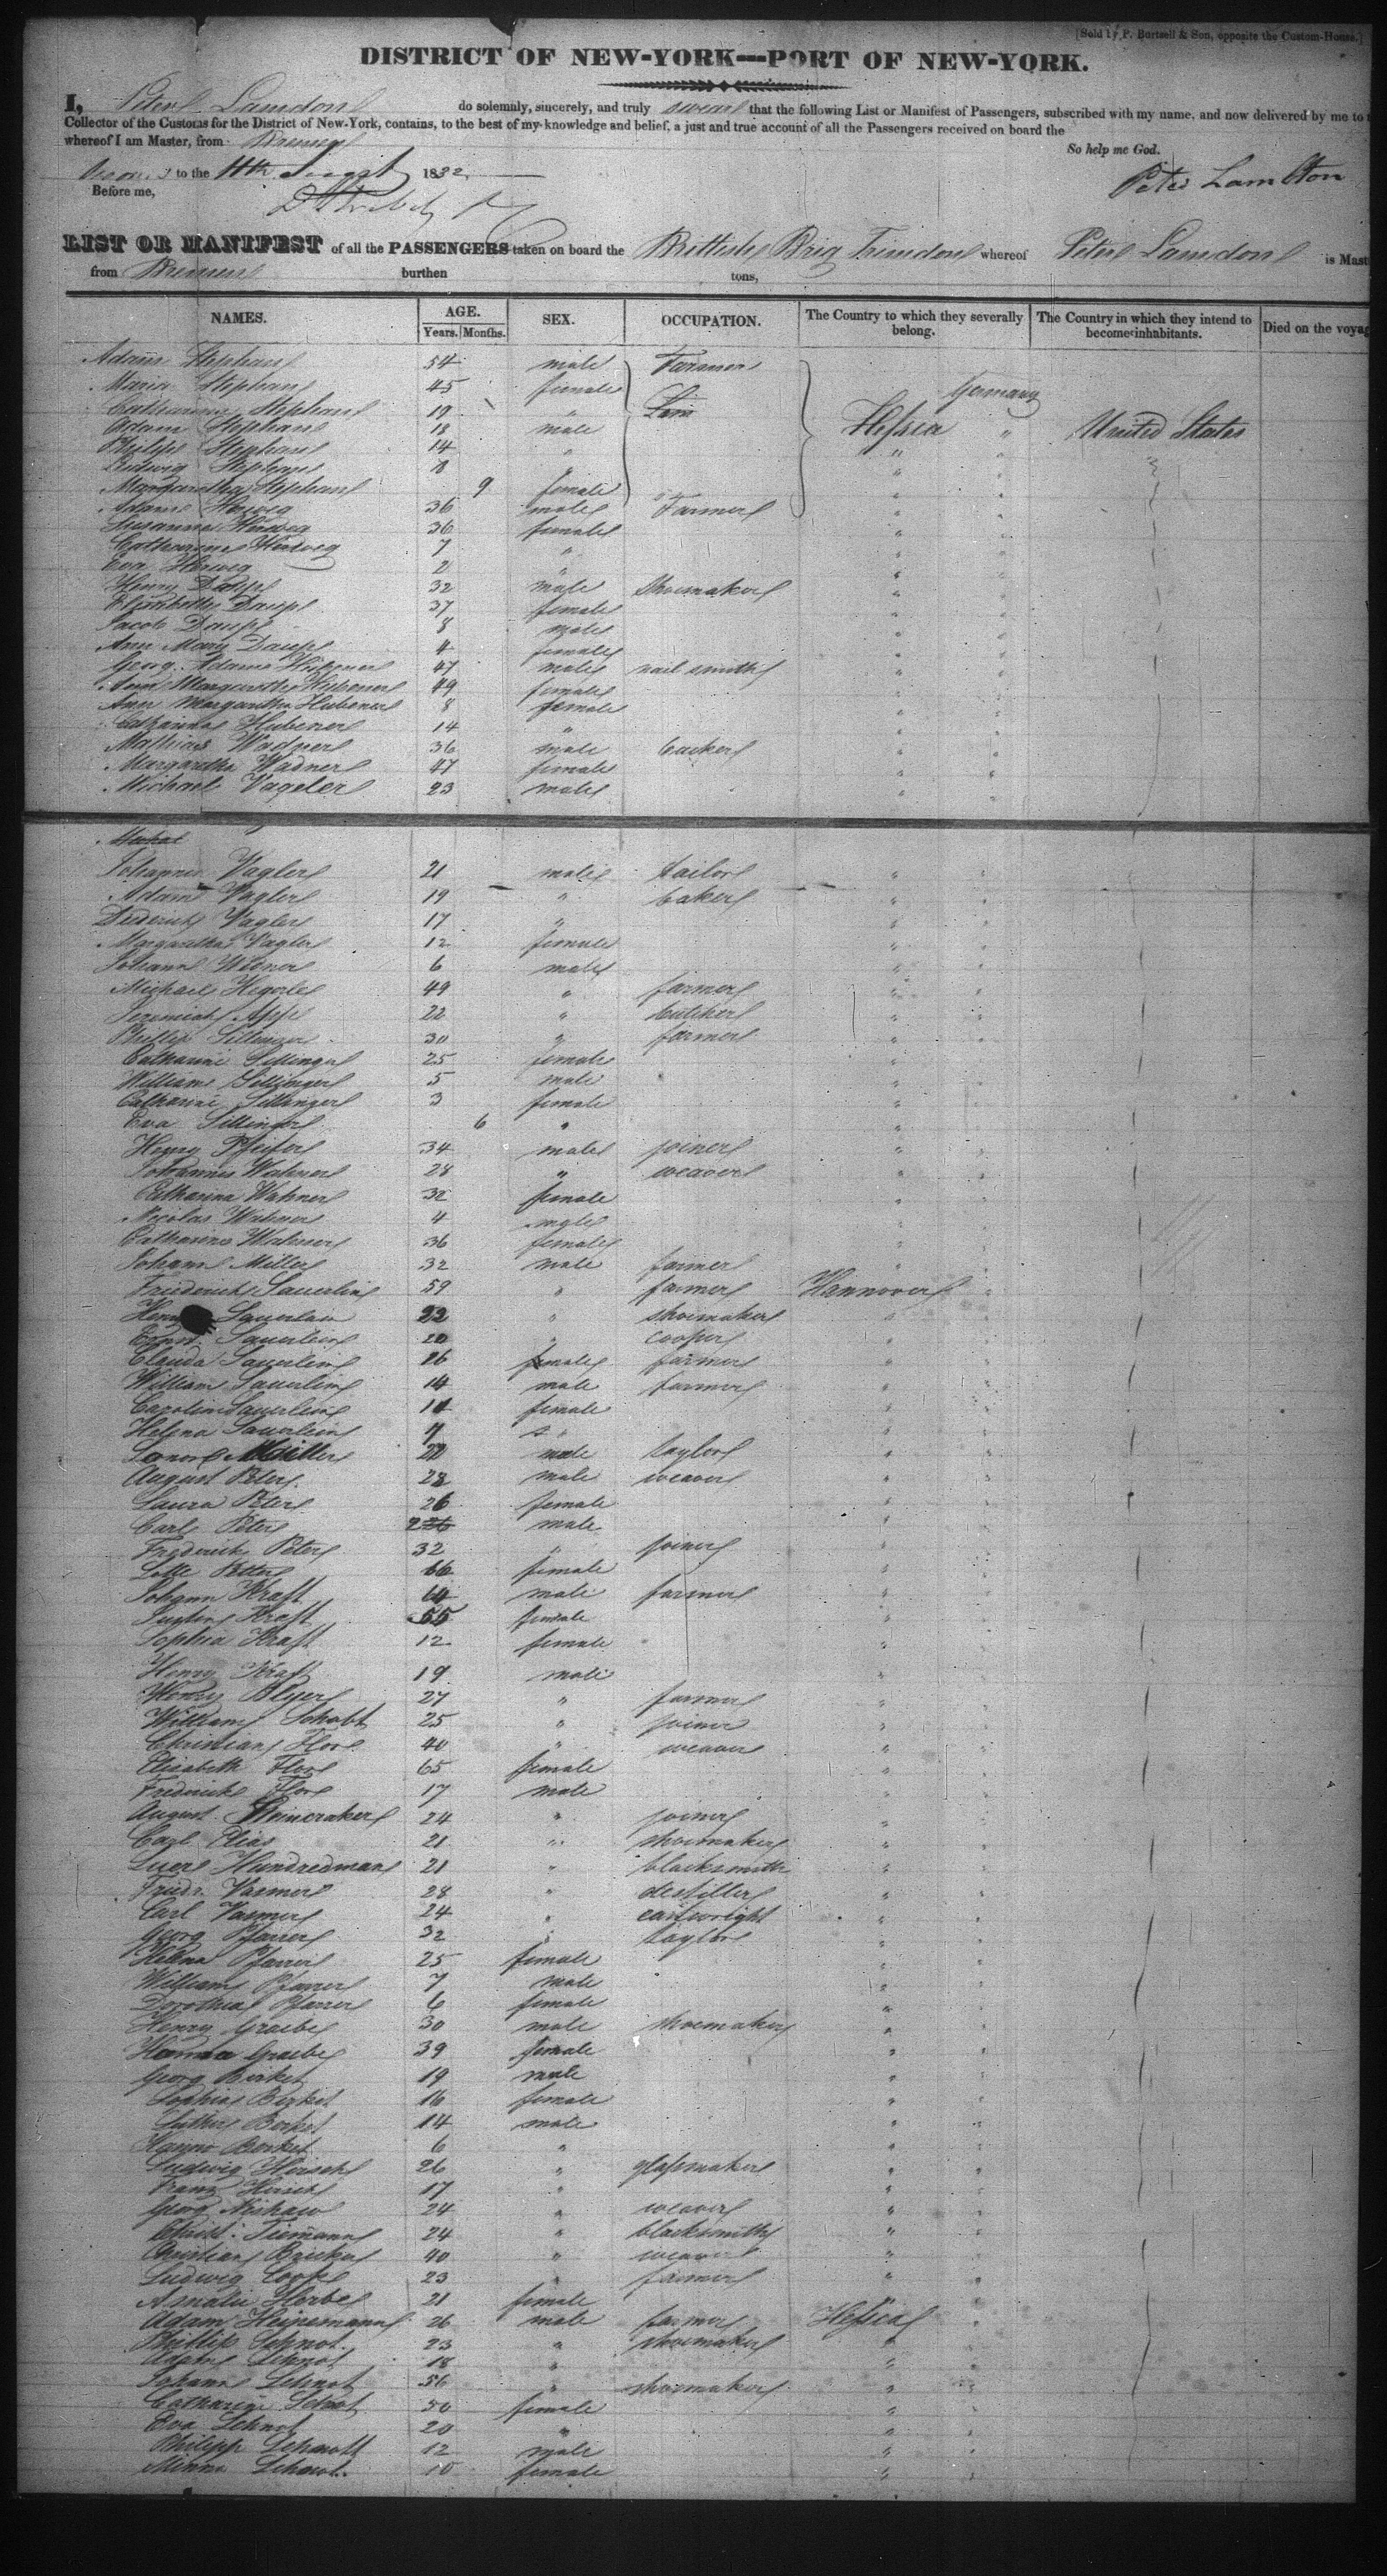 [Sold by P. Burtsell & Son, opposite the Custom-House.]
DISTRICT OF NEW-YORK---PORT OF NEW-YORK.
I, Peter Lamdon do solemnly, sincerely, and truly swear that the following List or Manifest of Passengers, subscribed with my name, and now delivered by me to
Collector of the Customs for the District of New-York, contains, to the best of my knowledge and belief, a just and true account of all the Passengers received on board the
whereof I am Master, from Bremen
So help me God.
to the 11th August 1832
Peter Lambton
Before me,
LIST OR MANIFEST of all the PASSENGERS taken on board the Brittish Brig Trimdon whereof Peter Lamdon is Mast
from Bremen burthen tons,
NAMES. AGE. Years. Months. SEX. OCCUPATION. The Country to which they severally belong. The Country in which they intend to become inhabitants. Died on the voyag
Adam Stephan 54 male Farmer
Maria Stephan 45 female Germany
Catharina Stephan 19 "
Adam Stephan 18 male Hessia " United States
Philip Stephan 14 " " "
Ludwig Stephan 8 " "
Margaretha Stephan 9 female " "
Adam Herweg 36 male Farmer " "
Susanna Herweg 36 female " "
Catharina Herweg 7 " " "
Eva Herweg 2 " " "
Henry Daupl 32 male Shoemaker " "
Elisabetha Daupl 37 female " "
Jacob Daupl 8 male " "
Ann Mary Daupl 4 female " "
Georg Adam Hubener 47 male nail smith " "
Ann Margaretha Hubener 49 female " "
Ann Margaretha Hubener 8 female " "
Catharina Hubener 14 " " "
Mathias Wadner 36 male backer " "
Margaretha Wadner 47 female " "
Michael Vageler 23 male " "
Johannes Vagler 21 male tailor " "
Adam Vagler 19 " baker " "
Diederich Vagler 17 " " "
Margaretha Vagler 12 female " "
Johann 6 male " "
Michael Hegerle 49 " farmer " "
Jeremiah App 22 " butcher " "
Phillip Sillinger 30 " farmer " "
Catharine Sillinger 25 female " "
William Sillinger 5 male " "
Catharine Sillinger 3 female " "
Eva Sillinger 6 " " "
Henry Pfeifer 34 male joiner " "
Johannes Wahner 28 " weaver " "
Catharina Wahner 32 female " "
Nicolas Wahner 4 male " "
Catharina Wahner 36 female " "
Johann Miller 32 male farmer " "
Friederich Sauerlein 59 " farmer Hannover "
Henry Sauerlein 22 " shoemaker " "
Ernst Sauerlein 20 " cooper " "
Clauda Sauerlein 26 female farmer " "
William Sauerlein 14 male farmer " "
Carolin Sauerlein 11 female " "
Helena Sauerlein 7 " " "
Miller 22 male taylor " "
August Peter 28 male weaver " "
Laura Peter 26 female " "
Carl Peter male " "
Frederick Peter 32 " joiner " "
Lotte Peter 66 female " "
Johann Kraft male farmer " "
Justine Kraft 55 female " "
Sophia Kraft 12 female " "
Henry Kraft 19 male " "
Henry Meyer 27 " farmer " "
William Schabt 25 " joiner " "
Christian Flore 40 " weaver " "
Elisabeth Flore 65 female " "
Frederick Flore 17 male " "
August 24 " joiner " "
Carl Elias 21 " shoemaker " "
Luer Hundredmann 21 " blacksmith " "
Friedr. Vasmer 28 " destiller " "
Carl Vasmer 24 " cartwright " "
Georg Pfarrer 32 " taylor " "
Helena Pfarrer 25 female " "
William Pfarrer 7 male " "
Dorothea Pfarrer 6 female " "
Henry Graebe 30 male shoemaker " "
Hanna Graebe 39 female " "
Georg Berket 19 male " "
Sophia Berket 16 female " "
Luther Berket 14 male " "
Hanno Berket 6 " " "
Ludwig Hirsch 26 " glassmaker " "
Franz Hirsch 17 " " "
Georg 24 " weaver " "
Christ. Tiemann 24 " blacksmith " "
Christian 40 " weaver " "
Ludwig 23 " farmer " "
Amalie Herbe 21 female " "
Adam Heinemann 26 male farmer Hessia "
Phillip Schnot 23 " shoemaker " "
Adam Schnot 18 " " "
Johann Schnot 56 " shoemaker " "
Catharina Schnot 50 female " "
Eva Schnot 20 " " "
Philipp Schnott 12 male " "
Minna Schnot 10 female " "